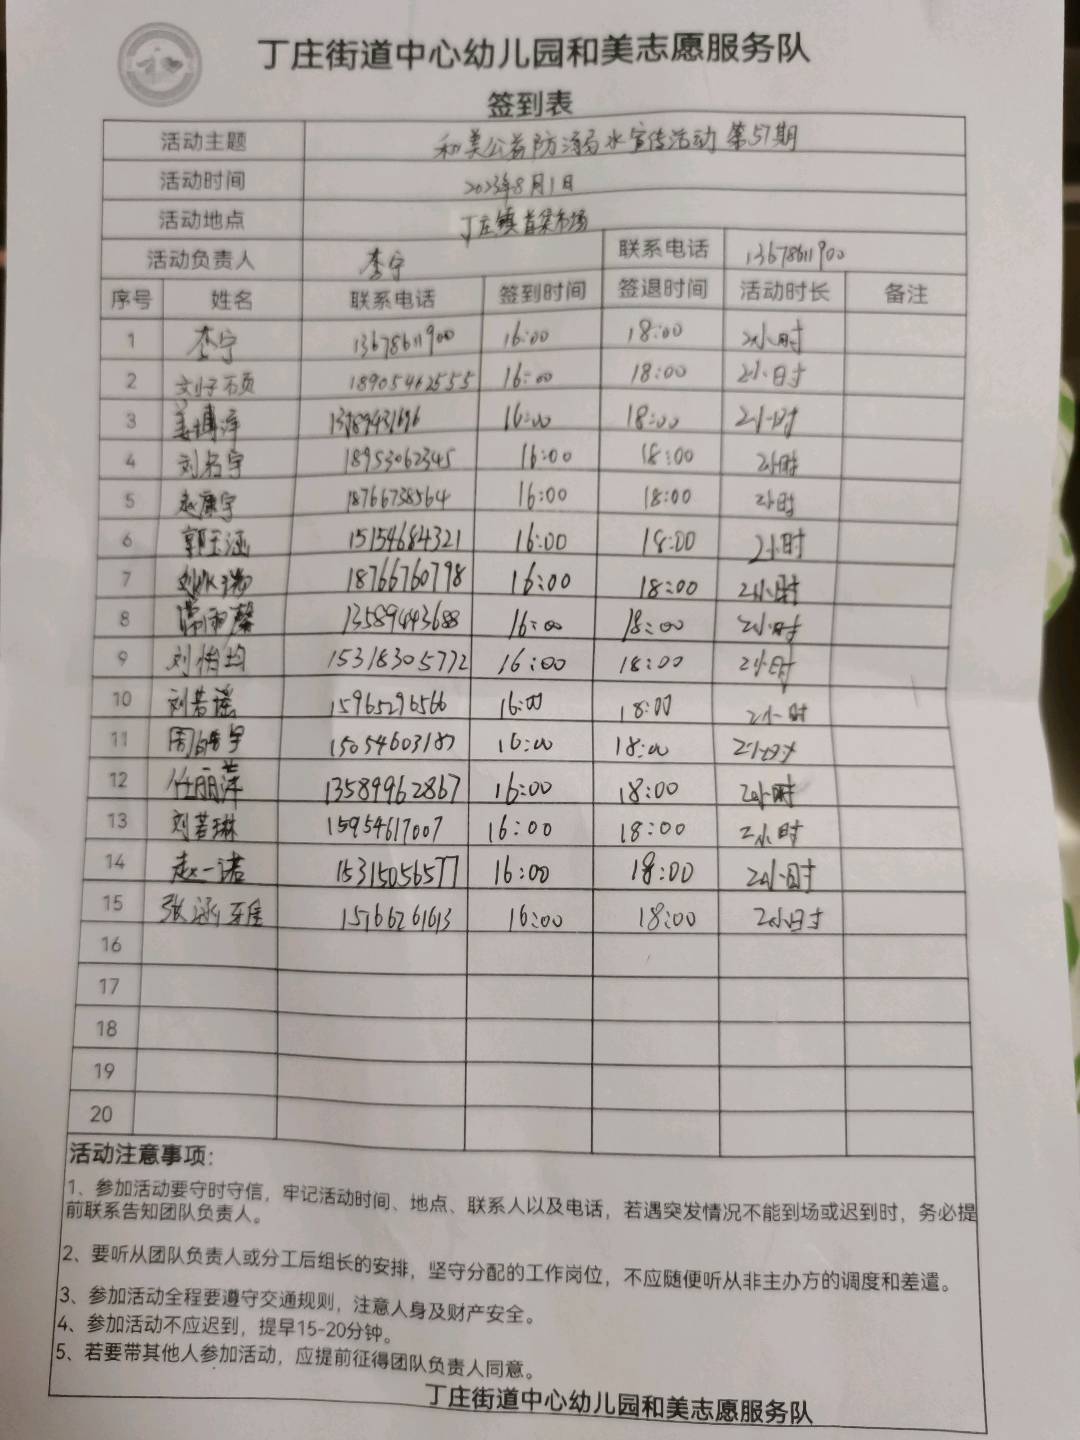 丁庄街道中心幼儿园和美志愿服务队
签到表
活动主题 和美公益防溺水宣传活动 第57期
活动时间 2023年8月1日
活动地点 丁庄镇首集市场
活动负责人 李宁 联系电话 13678611900
序号 姓名 联系电话 签到时间 签退时间 活动时长 备注
1 李宁 13678611900 16:00 18:00 2小时
2 18905462555 16:00 18:00 2小时
3 姜博洋 16:00 18:00 2小时
4 刘名宇 18953062345 16:00 18:00 2小时
5 赵康宇 18766738564 16:00 18:00 2小时
6 郭玉涵 15154684321 16:00 18:00 2小时
7 18766760798 16:00 18:00 2小时
8 常雨馨 13589443688 16:00 18:00 2小时
9 刘怡均 15318305772 16:00 18:00 2小时
10 刘若瑶 15965296566 16:00 18:00 2小时
11 周皓宇 15054603187 16:00 18:00 2小时
12 任丽萍 13589962867 16:00 18:00 2小时
13 刘若琳 15954617007 16:00 18:00 2小时
14 赵一诺 15315056577 16:00 18:00 2小时
15 张涵雅 15766261613 16:00 18:00 2小时
16
17
18
19
20
活动注意事项：
1、参加活动要守时守信，牢记活动时间、地点、联系人以及电话，若遇突发情况不能到场或迟到时，务必提
前联系告知团队负责人。
2、要听从团队负责人或分工后组长的安排，坚守分配的工作岗位，不应随便听从非主办方的调度和差遣。
3、参加活动全程要遵守交通规则，注意人身及财产安全。
4、参加活动不应迟到，提早15-20分钟。
5、若要带其他人参加活动，应提前征得团队负责人同意。
丁庄街道中心幼儿园和美志愿服务队